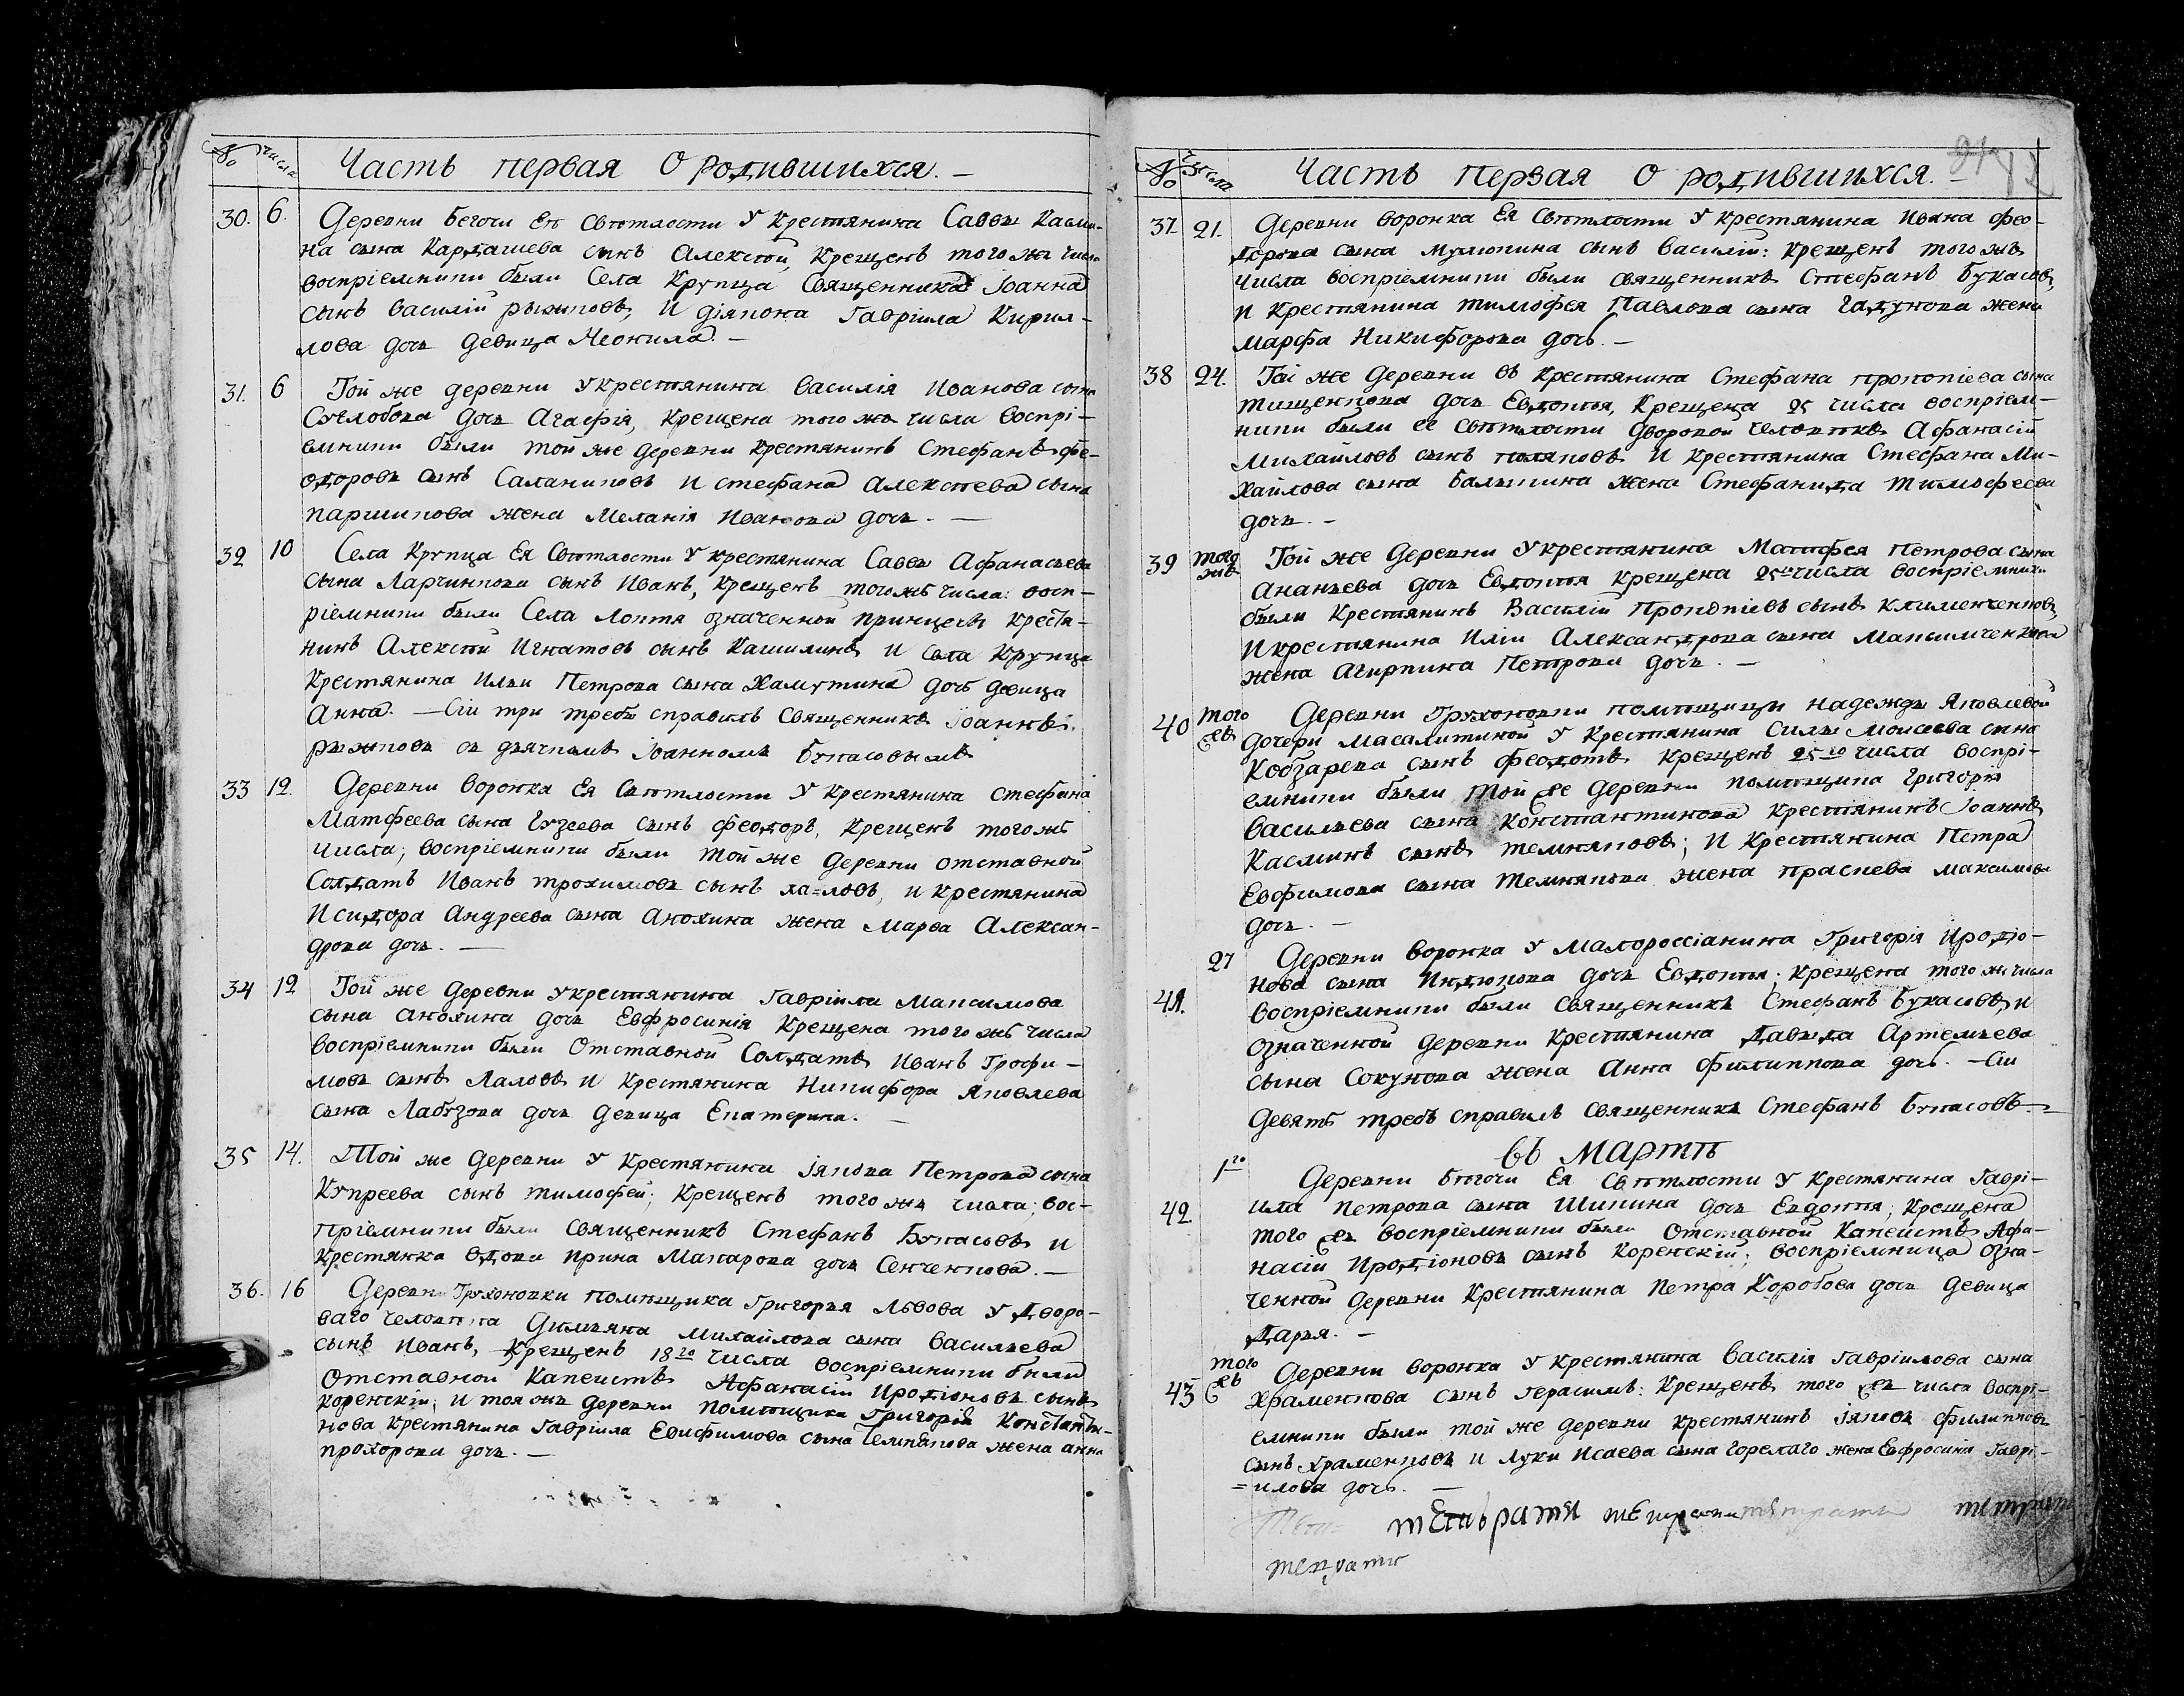 № числа Часть первая О родившихся. —
30. 6. Деревни Бегочи Ея Свѣтлости У крестянина Саввы Касми-
на сына Кардашева сынъ Алексѣй, Крещенъ того жъ числа
воспріемники были Села Крупца Священника Іоанна
сынъ Василій рыжковъ, И діякона Гавріила Кирил-
лова дочь девица Неонила. —
31. 6 Той же деревни У крестянина Василія Иванова сына
дочь Агафія, Крещена того жъ числа воспрі-
емники были той же деревни крестянинъ Стефанъ фе-
одоровъ сынъ Саланиковъ и стефана Алексѣева сына
паршикова жена Меланія Иванова дочь. —
32 10 Села Крупца Ея Свѣтлости У крестянина Саввы Афанасьева
сына Ларчинкова сынъ Иванъ, крещенъ тогожъ числа: восп-
ріемники были Села Локтя означенной принцесы крестя-
нинъ Алексѣй Игнатовъ сынъ Кашилинъ и Села Крупца
Крестянина Ильи Петрова сына Хамутина дочь девица
Анна. — Сіи три требы справилъ Священникъ Іоаннъ
рыжковъ съ дьячкомъ Іоанномъ Букасовымъ
33 12. Деревни Воронка Ея Свѣтлости У крестянина Стефана
Матфеева сына Гузеева сынъ Феодоръ, Крещенъ тогожъ
числа; воспріемники были той же деревни отставной
Солдатъ Иванъ трохимовъ сынъ ла=ловъ, и крестянина
Исидора Андреева сына Анохина жена Марѳа Алексан-
дрова дочь. —
34 12 Той же деревни У крестянина Гавріила Максимова
сына Анохина дочь Евфросинія Крещена того жъ числа
воспріемники были Отставной Солдатъ Иванъ Трофи-
мовъ сынъ Лаловъ и Крестянина Никифора Яковлева
сына Лабузова дочь девица Екатерина. —
35 14. Той же деревни У Крестянина Іякова Петрова сына
Купреева сынъ тимофей; Крещенъ того жъ числа; вос-
пріемники были священникъ Стефанъ Букасовъ и
Крестянка вдова ирина Макарова дочь Сенченкова. —
36. 16 Деревни Грухоновки помѣщика Григорья Львова У Дворо-
ваго человѣка Димьяна Михайлова сына Васильева
сынъ Иванъ, Крещенъ 18го числа воспріемники были
Отставной Капеистъ Афанасій Иродіоновъ сынъ
Коренскій; и тоя жъ деревни помѣщика Григорія Константи-
нова крестянина Гавріила Евфимова сына темнякова жена анна
прохорова дочь. —
№ числа Часть Первая О родившихся. —
37. 21. Деревни Воронка Ея Свѣтлости У крестянина Ивана фео-
дорова сына мулюкина сынъ Василій: Крещенъ того жъ
числа воспріемники были священникъ Стефанъ Букасовъ,
И Крестянина тимофея Павлова сына Гадунова жена
марфа Никифорова дочь. —
38 24. Той же деревни въ крестянина Стефана прокопіева сына
тищенкова дочь Евдокія, Крещена 25 числа воспріем-
ники были ее Свѣтлости дворовой человѣкъ Афанасій
Михайловъ сынъ поляковъ И Крестянина Стефана Ми-
хайлова сына Балыкина жена Стефанида тимофеева
дочь. —
39 того жъ Той же деревни У крестянина Матфея Петрова сына
Ананьева дочь Евдокія Крещена 25го числа воспріемники
были Крестянинъ Василій Прокопіевъ сынъ клименченковъ,
И крестянина Иліи Александрова сына Максимченкова
жена Агирпина Петрова дочь. —
40 того жъ Деревни Грухоновки помѣщицы Надежды Яковлевой
дочери Масалитиной У Крестянина Силы Моисеева сына
Кобзарева сынъ Феодотъ Крещенъ 25го числа воспрі-
емники были той же деревни помѣщика Григорія
Васильева сына Константинова Крестянинъ Іоаннъ
Касминъ сынъ темняковъ; И Крестянина Петра
Евфимова сына темнякова жена праскева максимова
дочь. —
27 Деревни Воронка У Малороссіанина Григорія Иродіо-
нова сына Индюкова дочь Евдокія; крещена того жъ числа
41. воспріемники были священникъ Стефанъ Букасовъ, и
Означенной деревни Крестянина Давыда Артемьева
сына Сокунова жена Анна Филиппова дочь. — Сіи
девять требъ справилъ священникъ Стефанъ Букасовъ —
Въ Мартѣ
1го Деревни Бѣгочи Ея Свѣтлости У крестянина Гаврі-
42 ила Петрова сына Шикина дочь Евдокія, Крещена
того жъ воспріемники были Отставной Капеистъ Афа-
насій Иродіоновъ сынъ Коренскій; воспріемница озна-
ченной деревни Крестянина Петра Коробова дочь девица
Дарья. —
43 того жъ Деревни Воронка У крестянина Василія Гавріилова сына
Храменкова сынъ Герасимъ: Крещенъ того жъ числа воспрі-
емники были той же деревни крестянинъ Іяковъ Филипповъ
сынъ Храменковъ и Луки Исаева сына горелаго жена Евфросинія Гаврі-
=илова дочь. —